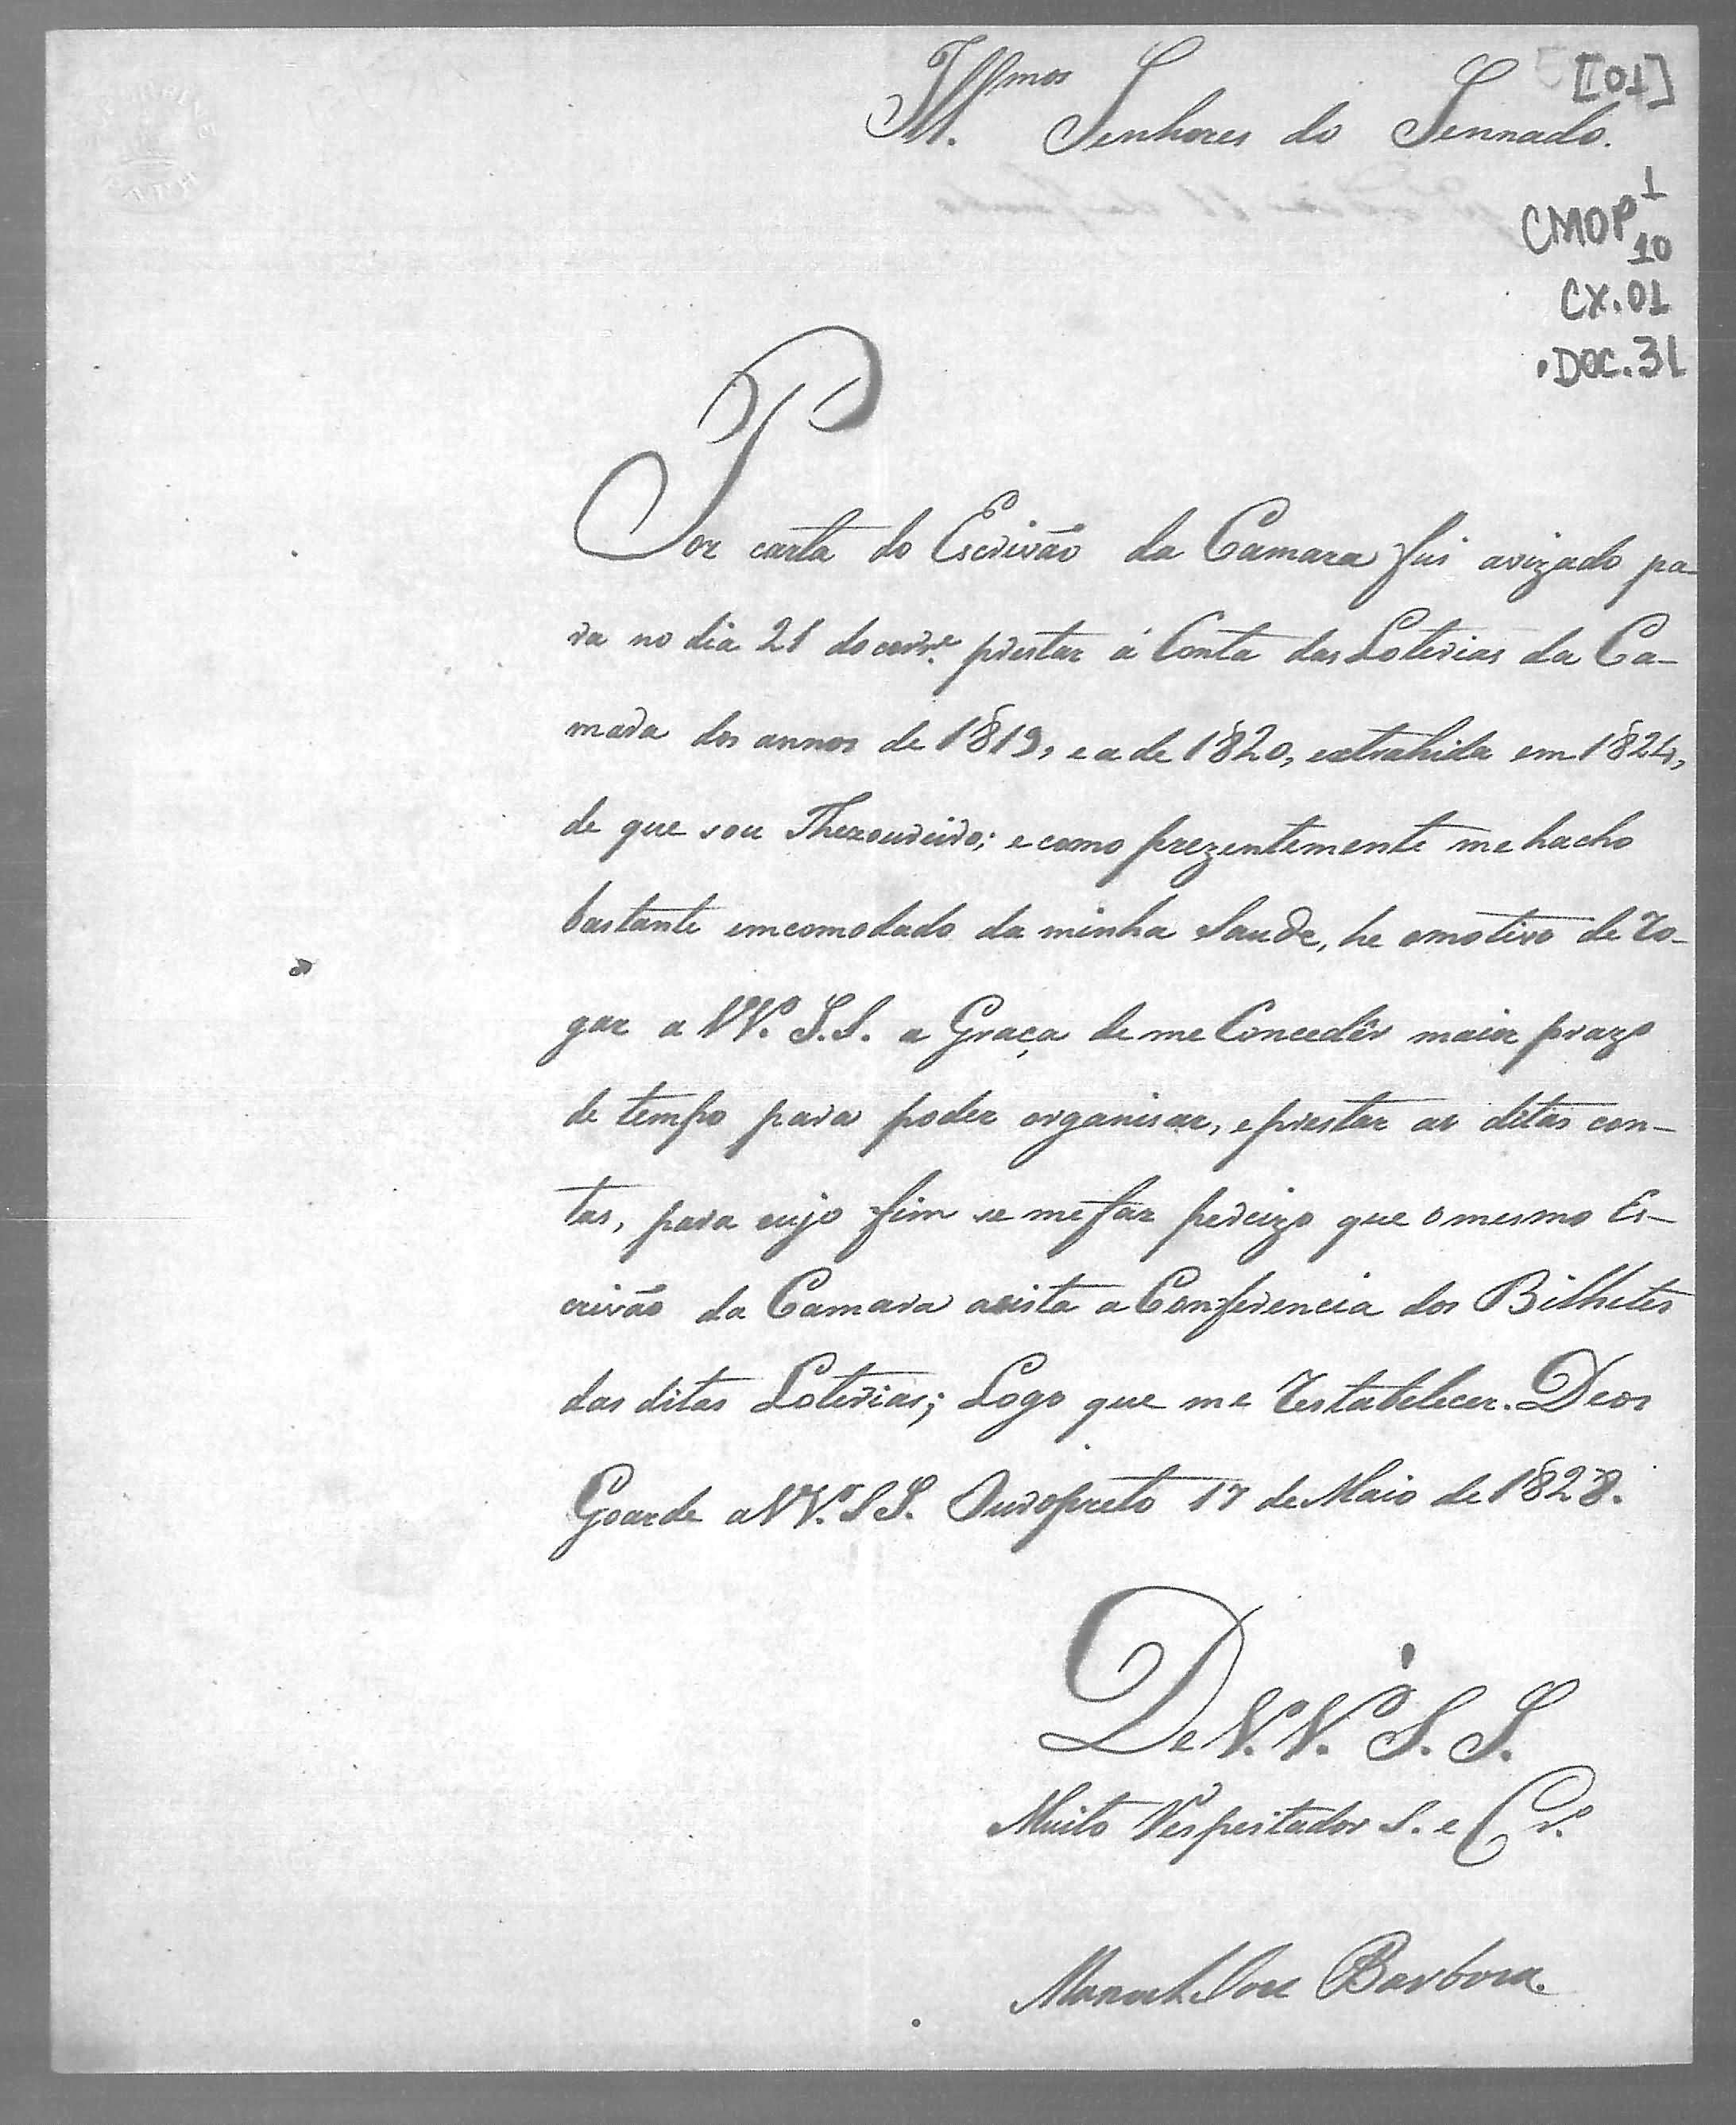 Ill.mos Senhores do Sennado.
[01]
CMOP 1
10
CX.01
.DOC.31
Por carta do Escrivão da Camara fui avizado pa-
ra no dia 21 do corr.e prestar á Conta das Loterias da Ca-
mara dos annos de 1819, e a de 1820, extrahida em 1824,
de que sou Thezoureiro; e como prezentemente me hacho
bastante emcomodado da minha Saude, he o motivo de Ro-
gar a VV. S.S. a Graça de me Concedêr maior prazo
de tempo para poder organisar, e prestar as ditas con-
tas, para cujo fim se me faz percizo que o mesmo Es-
crivão da Camara asista a Conferencia dos Bilhetes
das ditas Loterias; Logo que me Restabelecer. Deos
Goarde a VV.S S. Ouropreto 17 de Maio de 1828.
De V.V. S. S.
Muito Respeitador S. e Cr.
Manoel Jose Barboza.